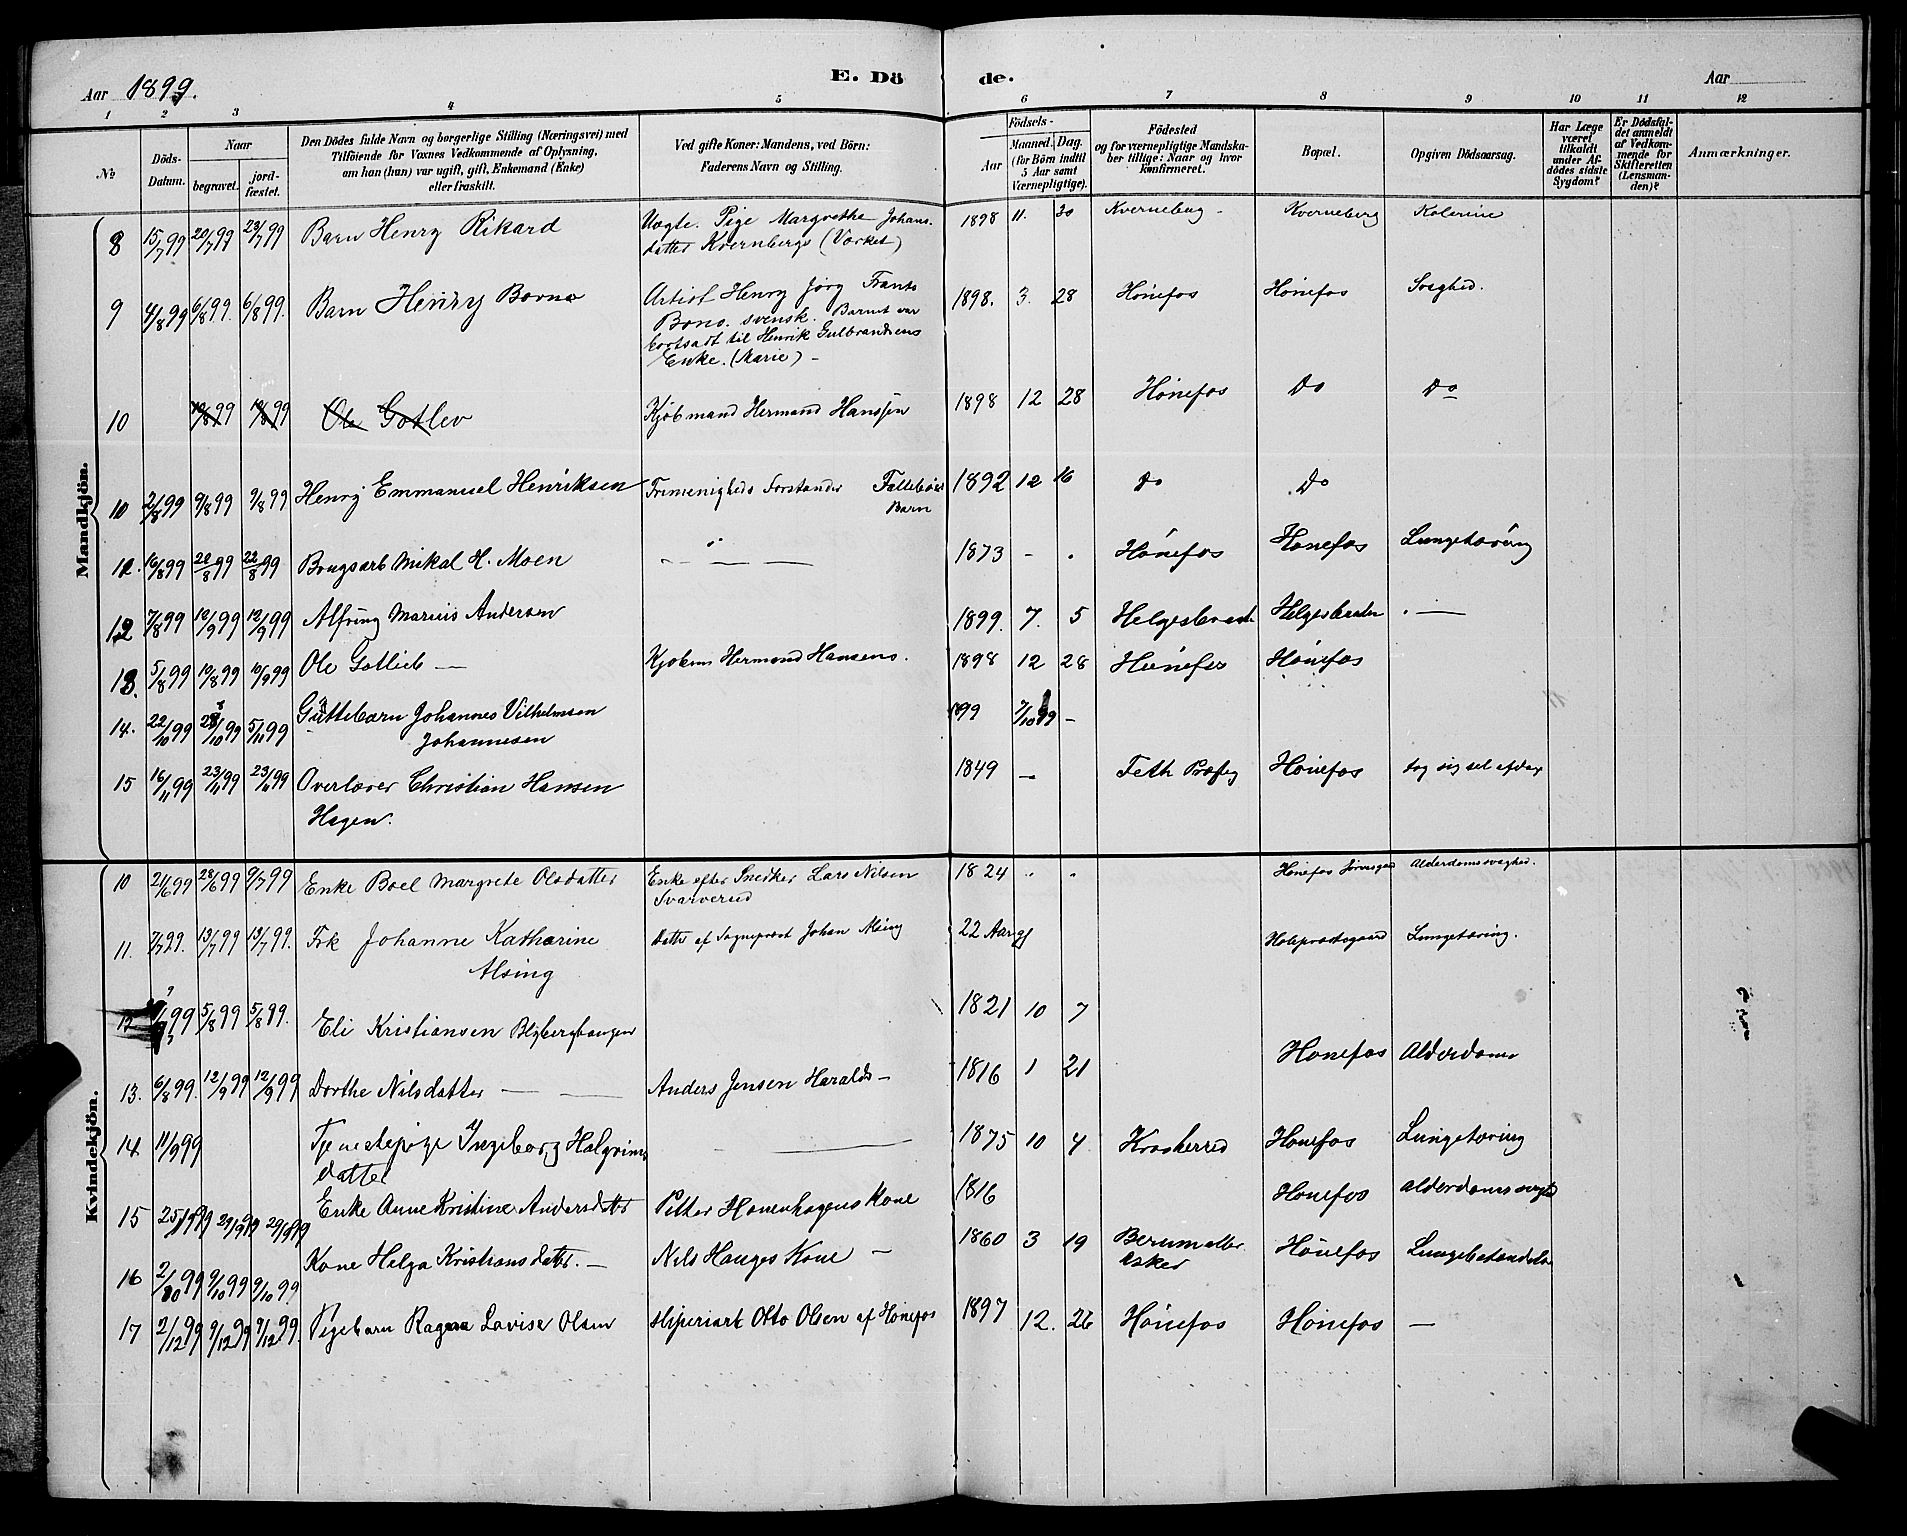 Aar 1899. E. Dö de. Aar
1 2 3 4 5 6 7 8 9 10 11 12
№ Döds-Datum. Naar begravet. jord-fæstet. Den Dödes fulde Navn og borgerlige Stilling (Næringsvei) med Tilföiende for Voxnes Vedkommende af Oplysning, om han (hun) var ugift, gift, Enkemand (Enke) eller fraskilt. Ved gifte Koner: Mandens, ved Börn: Faderens Navn og Stilling. Födsels- Aar Maaned. Dag. (for Börn indtil 5 Aar samt Værnepligtige). Födested og for værnepligtige Mandskaber tillige: Naar og hvor konfirmeret. Bopæl. Opgiven Dödsaarsag. Har Læge været tilkaldt under Afdödes sidste Sygdom? Er Dödsfaldet anmeldt af Vedkommende for Skifteretten (Lensmanden)? Anmærkninger.
Mandkjön.
8 15/7 99 20/7 99 23/7 99 Barn Henry Rikard Uægte. Pige Margrethe Johans- 1898 11. 30 Kverneberg - Kverneberg Kolerine
datter Kvernbergs (Værket)
9 4/8 99 6/8 99. 6/8 99. Barn Henry Borno Artist Henry Jorg Frants 1898. 3. 28 Hönefos Hönefos Svaghed.
Bono. svensk. Barnet var
bortsadt til Henrik Gulbrandsens
Enke. (Marie) -
10 10/8 99 10/8 99 Ole Gotlev Kjöbmand Hermand Hanssen 1898 12 28 Hönefos Do Do
10 2/8 99 9/8 99 9/8 99 Henry Emmanuel Henriksen Frimenigheds Forstander 1892 12 16 Do Do
Barn
16/8 99 22/8 99 22/8 99 Mikal H. Moen 1873 - . Hönefos Honefos Lungetæring
12 7/8 99 12/9 99 12/9 99 Marius Andersen 1899. 7. 5
13. 5/8 99 10/8 99 10/9 99 Ole Gotlieb — Kjobm Hermand Hansens. 1898 12 28 Hönefos Hönefos
14. 22/10 99 5/11 99 Guttebarn Johannes Vilhelmsen 7/10 99 -
Johannesen
15 16/11 99 23/11 99 23/11 99 Overlærer Christian Hansen 1849 - Hönefos tog sig sel afdag
Hagen.
Kvindekjön.
10 21/6 99 28/6 99 9/7 99 Enke Boel Margrete Olsdatter Enke efter Snedker Lars Nilsen 1824 . . Alderdomssvaghed.
Svarverud
11. 7/7 99. 13/7 99 13/7 99. Frk Johanne Katharine Datter af Sogneprest Johan Alsing 22 Aar gl Holeprestegaard Lungetæring.
Alsing
12 5/8 99 5/8 99. Eli Kristiansen 1821 10 7
13. 6/8 99. 12/9 99 12/9 99 Dorthe Nilsdatter — Anders Jensen Haralds - 1816 1 21 Honefos Alderdoms
14 11/9 99 Tjenestepige Ingeborg Halgrims 1875 10 4 Kroskerred Honefos Lungetæring
datter
15 25/9 99 29/9 99 29/9 99 Enke Anne Kristine Andersdatter Petter Honenhagens Kone 1816 Honefos
16 2/10 99 9/10 99 9/10 99 Kone Helga Kristiansdatter. — Nils Hauges Kone — 1860 3 19 Berum eller Hönefos
Asker
17 2/12 99 9/12 99 9/12 99. Pigebarn Ragna Lovise Olsen Sliperiarb Otto Olsen af Hönefos 1897 12. 26 Hönefos Hönefos —